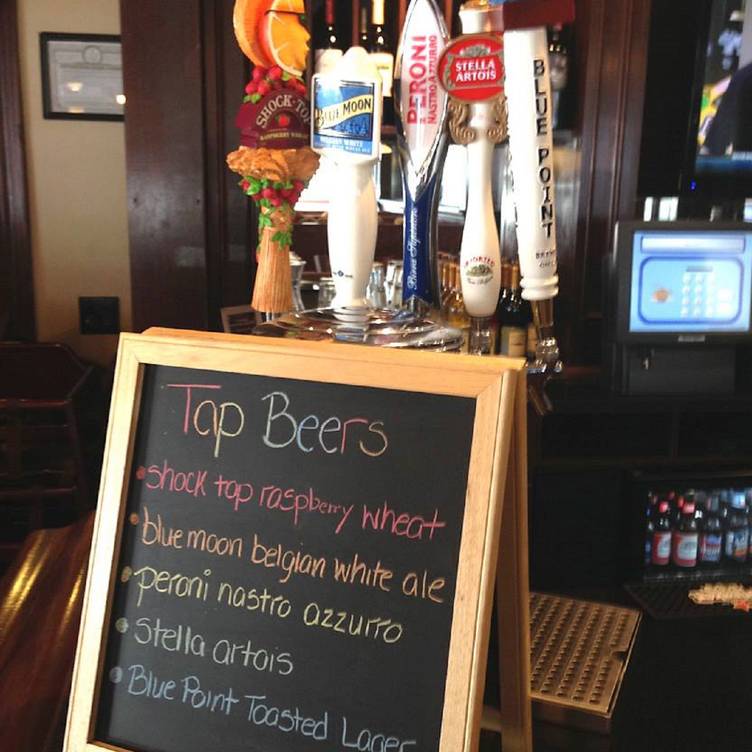 SHOCK-TOP
RASPBERRY WHEAT
BLUE MOON
BELGIAN WHITE
PERONI
NASTRO AZZURRO
Birra Superiore
STELLA
ARTOIS
BLUE POINT
Tap Beers
shock top raspberry wheat
blue moon belgian white ale
peroni nastro azzurro
stella artois
Blue Point Toasted Lager